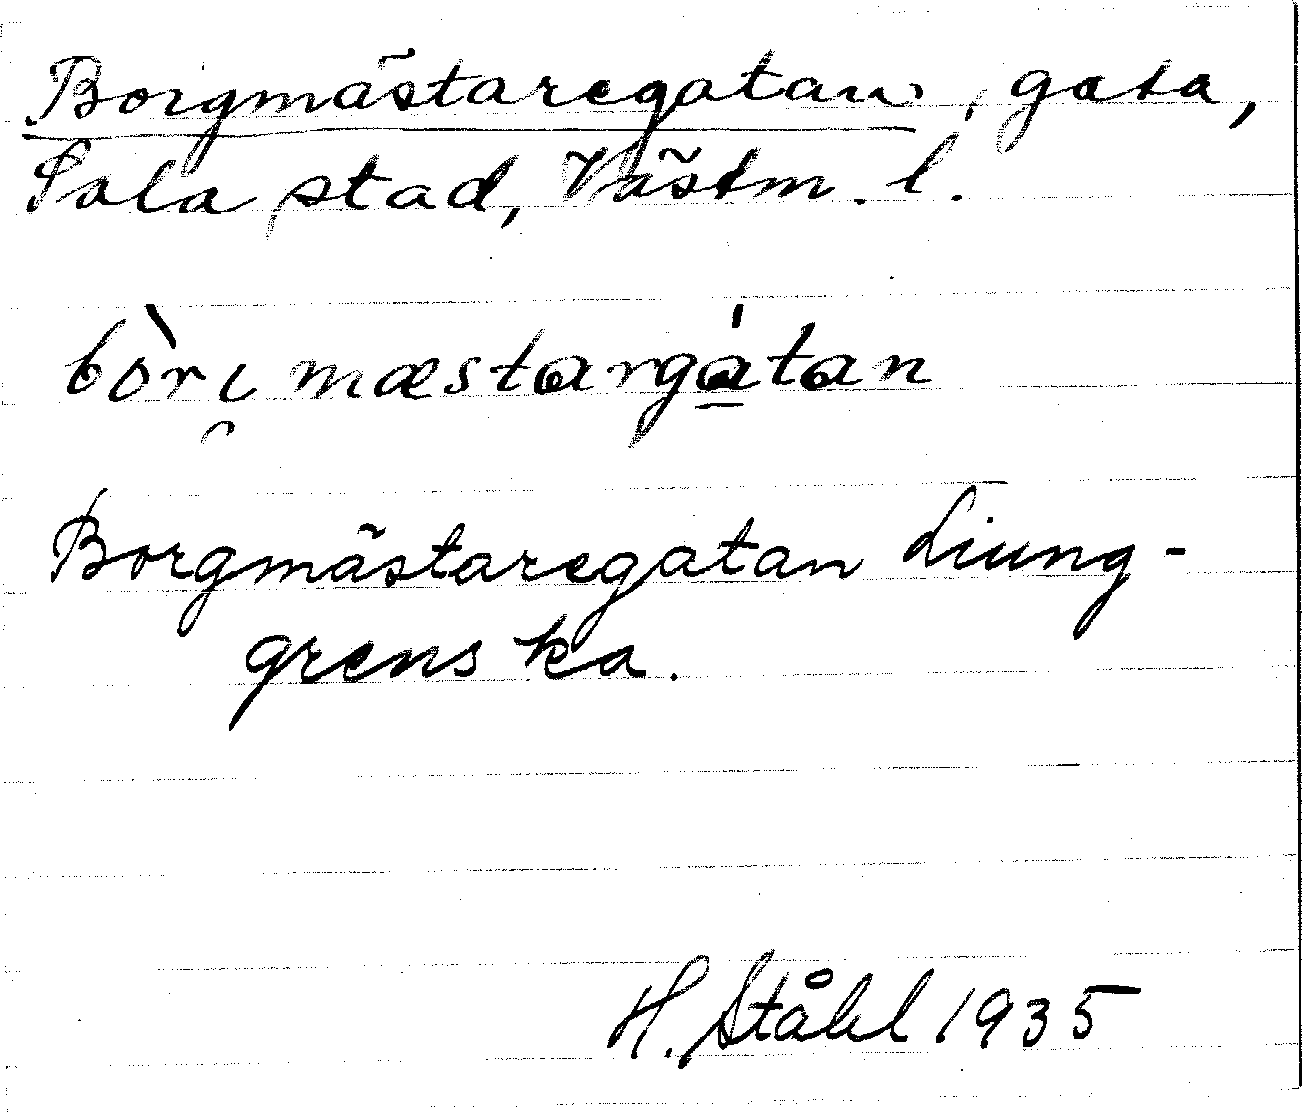 Borgmästaregatan, gata,
Sala stad, Västm. l.
bòri̯mæstargàtan
Borgmästaregatan Liung-
grenska.
H. Ståhl 1935